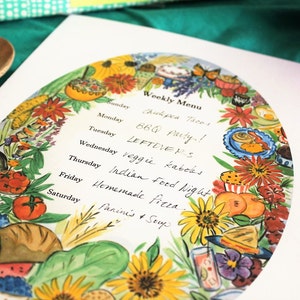 Weekly Menu
Sunday Chickpea Tacos
Monday BBQ Party!
Tuesday LEFTOVERS
Wednesday Veggie Kabobs
Thursday Indian Food Night
Friday Homemade Pizza
Saturday Paninis & Soup